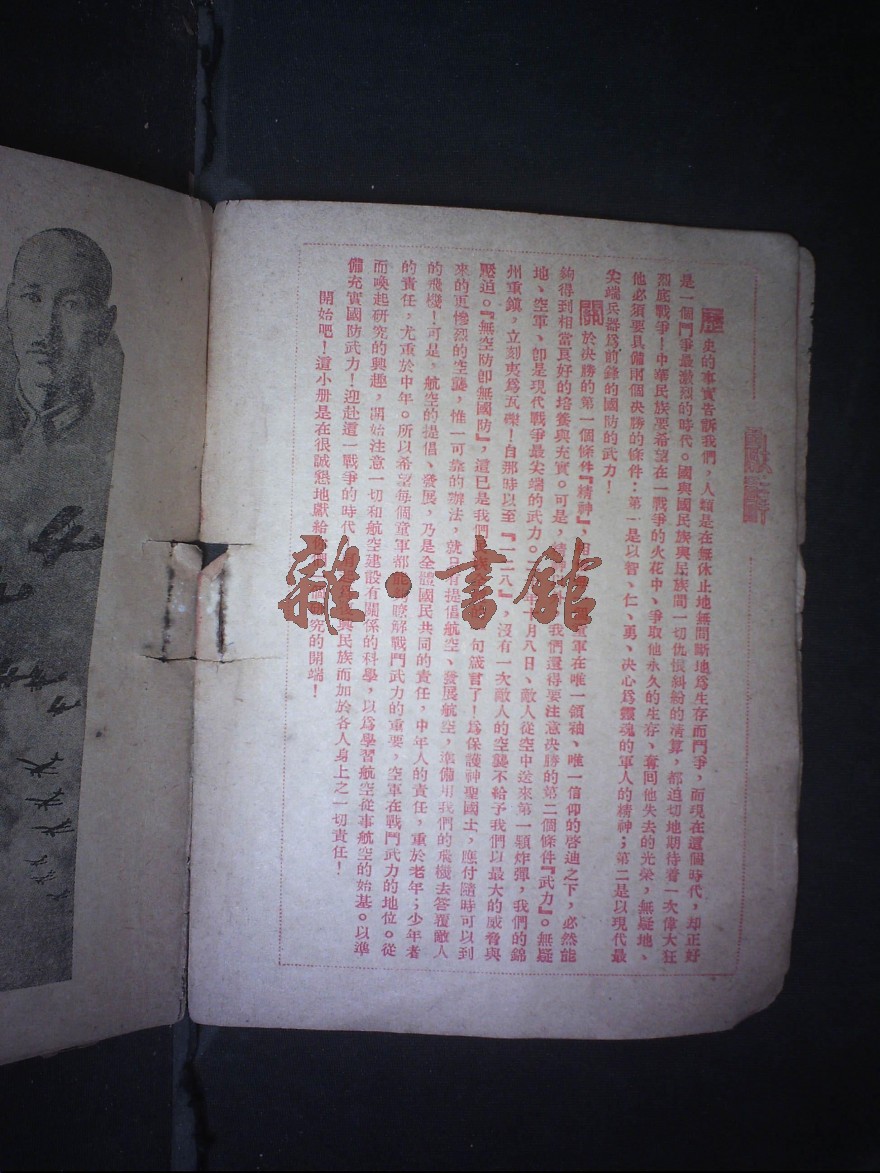 獻辭
歷史的事實告訴我們，人類是在無休止地無間斷地爲生存而鬥爭，而現在這個時代，却正好
是一個鬥爭最激烈的時代。國與國民族與民族間一切仇恨糾紛的清算，都迫切地期待着一次偉大狂
烈底戰爭！中華民族要希望在一戰爭的火花中、爭取他永久的生存、奪回他失去的光榮，無疑地、
他必須要具備兩個决勝的條件：第一是以智、仁、勇、决心爲靈魂的軍人的精神；第二是以現代最
尖端兵器爲前鋒的國防的武力！
關於决勝的第一個條件『精神』、 童軍在唯一領袖、唯一信仰的啓迪之下，必然能
夠得到相當良好的培養與充實。可是， 我們還得要注意决勝的第二個條件『武力』。無疑
地、空軍、卽是現代戰爭最尖端的武力。 月八日、敵人從空中送來第一顆炸彈，我們的錦
州重鎭，立刻夷爲瓦礫！自那時以至『一二八』，沒有一次敵人的空襲不給予我們以最大的威脅與
壓迫。『無空防卽無國防』，這已是我們 句箴言了！爲保護神聖國土，應付隨時可以到
來的更慘烈的空襲，惟一可靠的辦法，就只有提倡航空、發展航空，準備用我們的飛機去答覆敵人
的飛機！可是，航空的提倡、發展，乃是全體國民共同的責任，中年人的責任，重於老年；少年者
的責任，尤重於中年。所以希望每個童軍都能 瞭解戰鬥武力的重要，空軍在戰鬥武力的地位。從
而喚起研究的興趣，開始注意一切和航空建設有關係的科學，以爲學習航空從事航空的始基。以準
備充實國防武力！迎赴這一戰爭的時代 與民族而加於各人身上之一切責任！
開始吧！這小册是在很誠懇地獻給 究的開端！
雜·書館